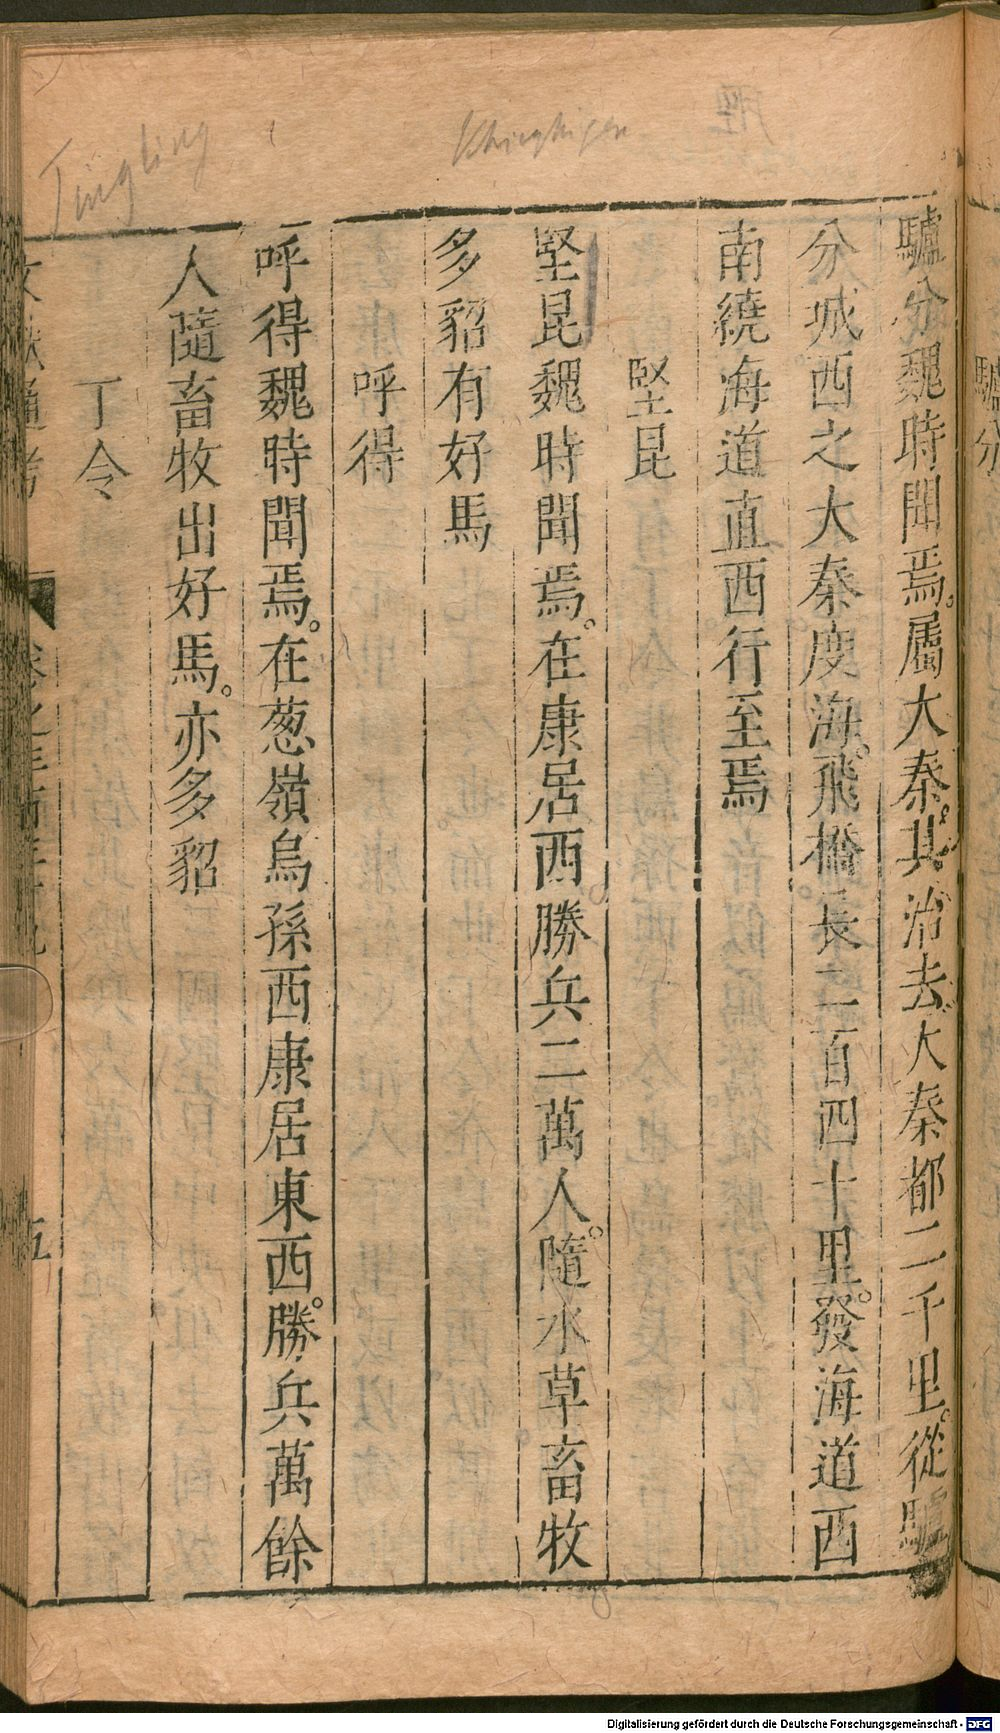 Tingling
Khirghizen
驢分魏時聞焉。屬大秦。其治去大秦都二千里。從驢
分城西之大秦度海。飛橋長二百四十里。發海道西
南繞海道直西行至焉
堅昆
堅昆魏時聞焉。在康居西勝兵三萬人。隨水草畜牧
多貂有好馬
呼得
呼得魏時聞焉。在葱嶺烏孫西康居東西。勝兵萬餘
人隨畜牧出好馬。亦多貂
丁令
五
驢分
Digitalisierung gefördert durch die Deutsche Forschungsgemeinschaft - DFG